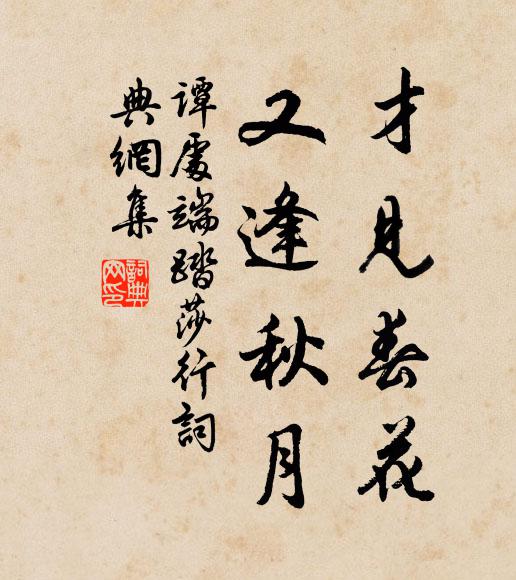 才見春花
又逢秋月
譚處端踏莎行詞
典網集
詞典網印